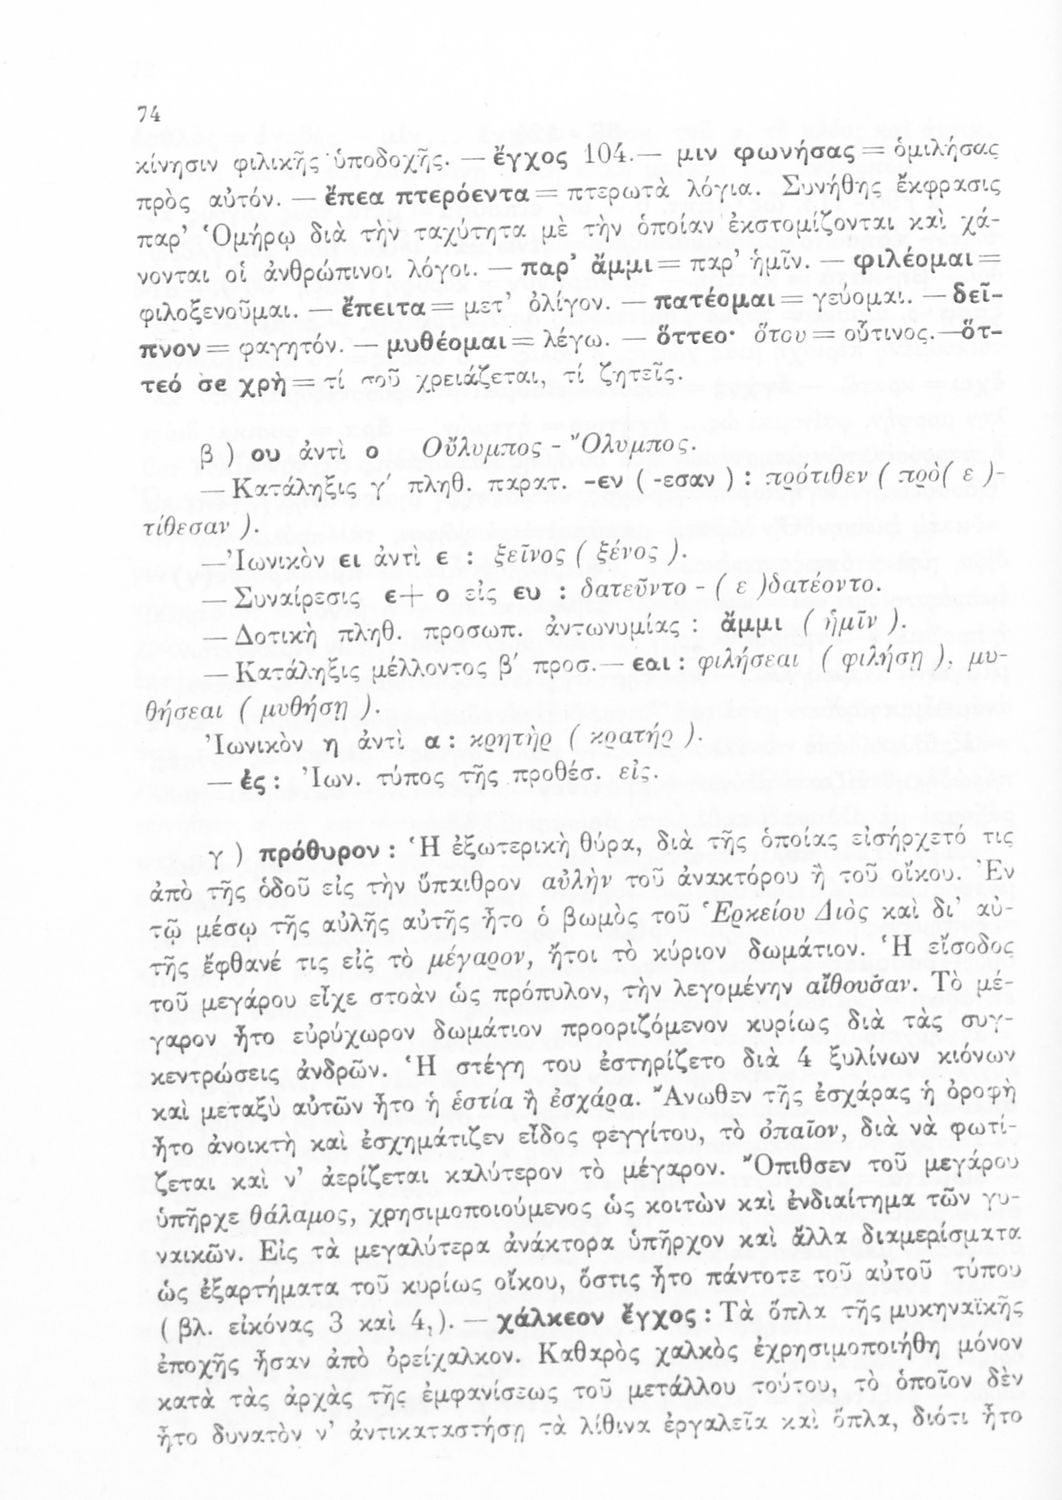 74
κίνησιν φιλικῆς ὑποδοχῆς. — ἔγχος 104.— μιν φωνήσας = ὁμιλήσας
πρὸς αὐτόν. — ἔπεα πτερόεντα = πτερωτὰ λόγια. Συνήθης ἔκφρασις
παρ’ Ὁμήρῳ διὰ τὴν ταχύτητα μὲ τὴν ὁποίαν ἐκστομίζονται καὶ χά-
νονται οἱ ἀνθρώπινοι λόγοι. — παρ’ ἄμμι = παρ’ ἡμῖν. — φιλέομαι =
φιλοξενοῦμαι. — ἔπειτα = μετ’ ὀλίγον. — πατέομαι = γεύομαι. — δεῖ-
πνον = φαγητόν. — μυθέομαι = λέγω. — ὅττεο· ὅτου = οὗτινος. — ὅτ-
τεό σε χρὴ = τί σοῦ χρειάζεται, τί ζητεῖς.
β ) ου ἀντὶ ο Οὔλυμπος - Ὄλυμπος.
— Κατάληξις γ΄ πληθ. παρατ. -εν ( -εσαν ) : πρότιθεν ( πρὸ( ε )-
τίθεσαν ).
—Ἰωνικὸν ει ἀντὶ ε : ξεῖνος ( ξένος ).
— Συναίρεσις ε + ο εἰς ευ : δατεῦντο - ( ε )δατέοντο.
— Δοτικὴ πληθ. προσωπ. ἀντωνυμίας : ἄμμι ( ἡμῖν ).
— Κατάληξις μέλλοντος β΄ προσ.— εαι : φιλήσεαι ( φιλήσῃ ), μυ-
θήσεαι ( μυθήσῃ ).
Ἰωνικὸν η ἀντὶ α : κρητὴρ ( κρατήρ ).
— ἐς : Ἰων. τύπος τῆς προθέσ. εἰς.
γ ) πρόθυρον : Ἡ ἐξωτερικὴ θύρα, διὰ τῆς ὁποίας εἰσήρχετό τις
ἀπὸ τῆς ὁδοῦ εἰς τὴν ὕπαιθρον αὐλὴν τοῦ ἀνακτόρου ἢ τοῦ οἴκου. Ἐν
τῷ μέσῳ τῆς αὐλῆς αὐτῆς ἦτο ὁ βωμὸς τοῦ Ἑρκείου Διὸς καὶ δι’ αὐ-
τῆς ἔφθανέ τις εἰς τὸ μέγαρον, ἤτοι τὸ κύριον δωμάτιον. Ἡ εἴσοδος
τοῦ μεγάρου εἶχε στοὰν ὡς πρόπυλον, τὴν λεγομένην αἴθουσαν. Τὸ μέ-
γαρον ἦτο εὐρύχωρον δωμάτιον προοριζόμενον κυρίως διὰ τὰς συγ-
κεντρώσεις ἀνδρῶν. Ἡ στέγη του ἐστηρίζετο διὰ 4 ξυλίνων κιόνων
καὶ μεταξὺ αὐτῶν ἦτο ἡ ἑστία ἢ ἐσχάρα. Ἄνωθεν τῆς ἐσχάρας ἡ ὀροφὴ
ἦτο ἀνοικτὴ καὶ ἐσχημάτιζεν εἶδος φεγγίτου, τὸ ὀπαῖον, διὰ νὰ φωτί-
ζεται καὶ ν’ ἀερίζεται καλύτερον τὸ μέγαρον. Ὄπιθσεν τοῦ μεγάρου
ὑπῆρχε θάλαμος, χρησιμοποιούμενος ὡς κοιτὼν καὶ ἐνδιαίτημα τῶν γυ-
ναικῶν. Εἰς τὰ μεγαλύτερα ἀνάκτορα ὑπῆρχον καὶ ἄλλα διαμερίσματα
ὡς ἐξαρτήματα τοῦ κυρίως οἴκου, ὅστις ἦτο πάντοτε τοῦ αὐτοῦ τύπου
( βλ. εἰκόνας 3 καὶ 4,). — χάλκεον ἔγχος : Τὰ ὅπλα τῆς μυκηναϊκῆς
ἐποχῆς ἦσαν ἀπὸ ὀρείχαλκον. Καθαρὸς χαλκὸς ἐχρησιμοποιήθη μόνον
κατὰ τὰς ἀρχὰς τῆς ἐμφανίσεως τοῦ μετάλλου τούτου, τὸ ὁποῖον δὲν
ἦτο δυνατὸν ν’ ἀντικαταστήσῃ τὰ λίθινα ἐργαλεῖα καὶ ὅπλα, διότι ἦτο